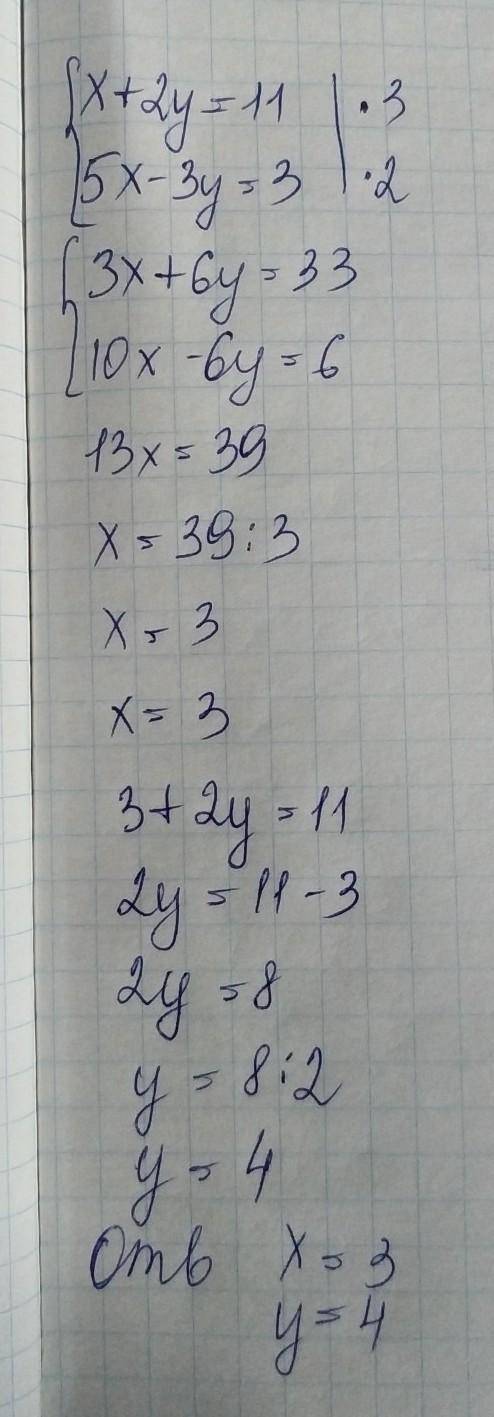 x+2y=11 | ·3
5x-3y=3 | ·2
3x+6y=33
10x-6y=6
13x=39
x=39:3
x=3
x=3
3+2y=11
2y=11-3
2y=8
y=8:2
y=4
Отв x=3
y=4